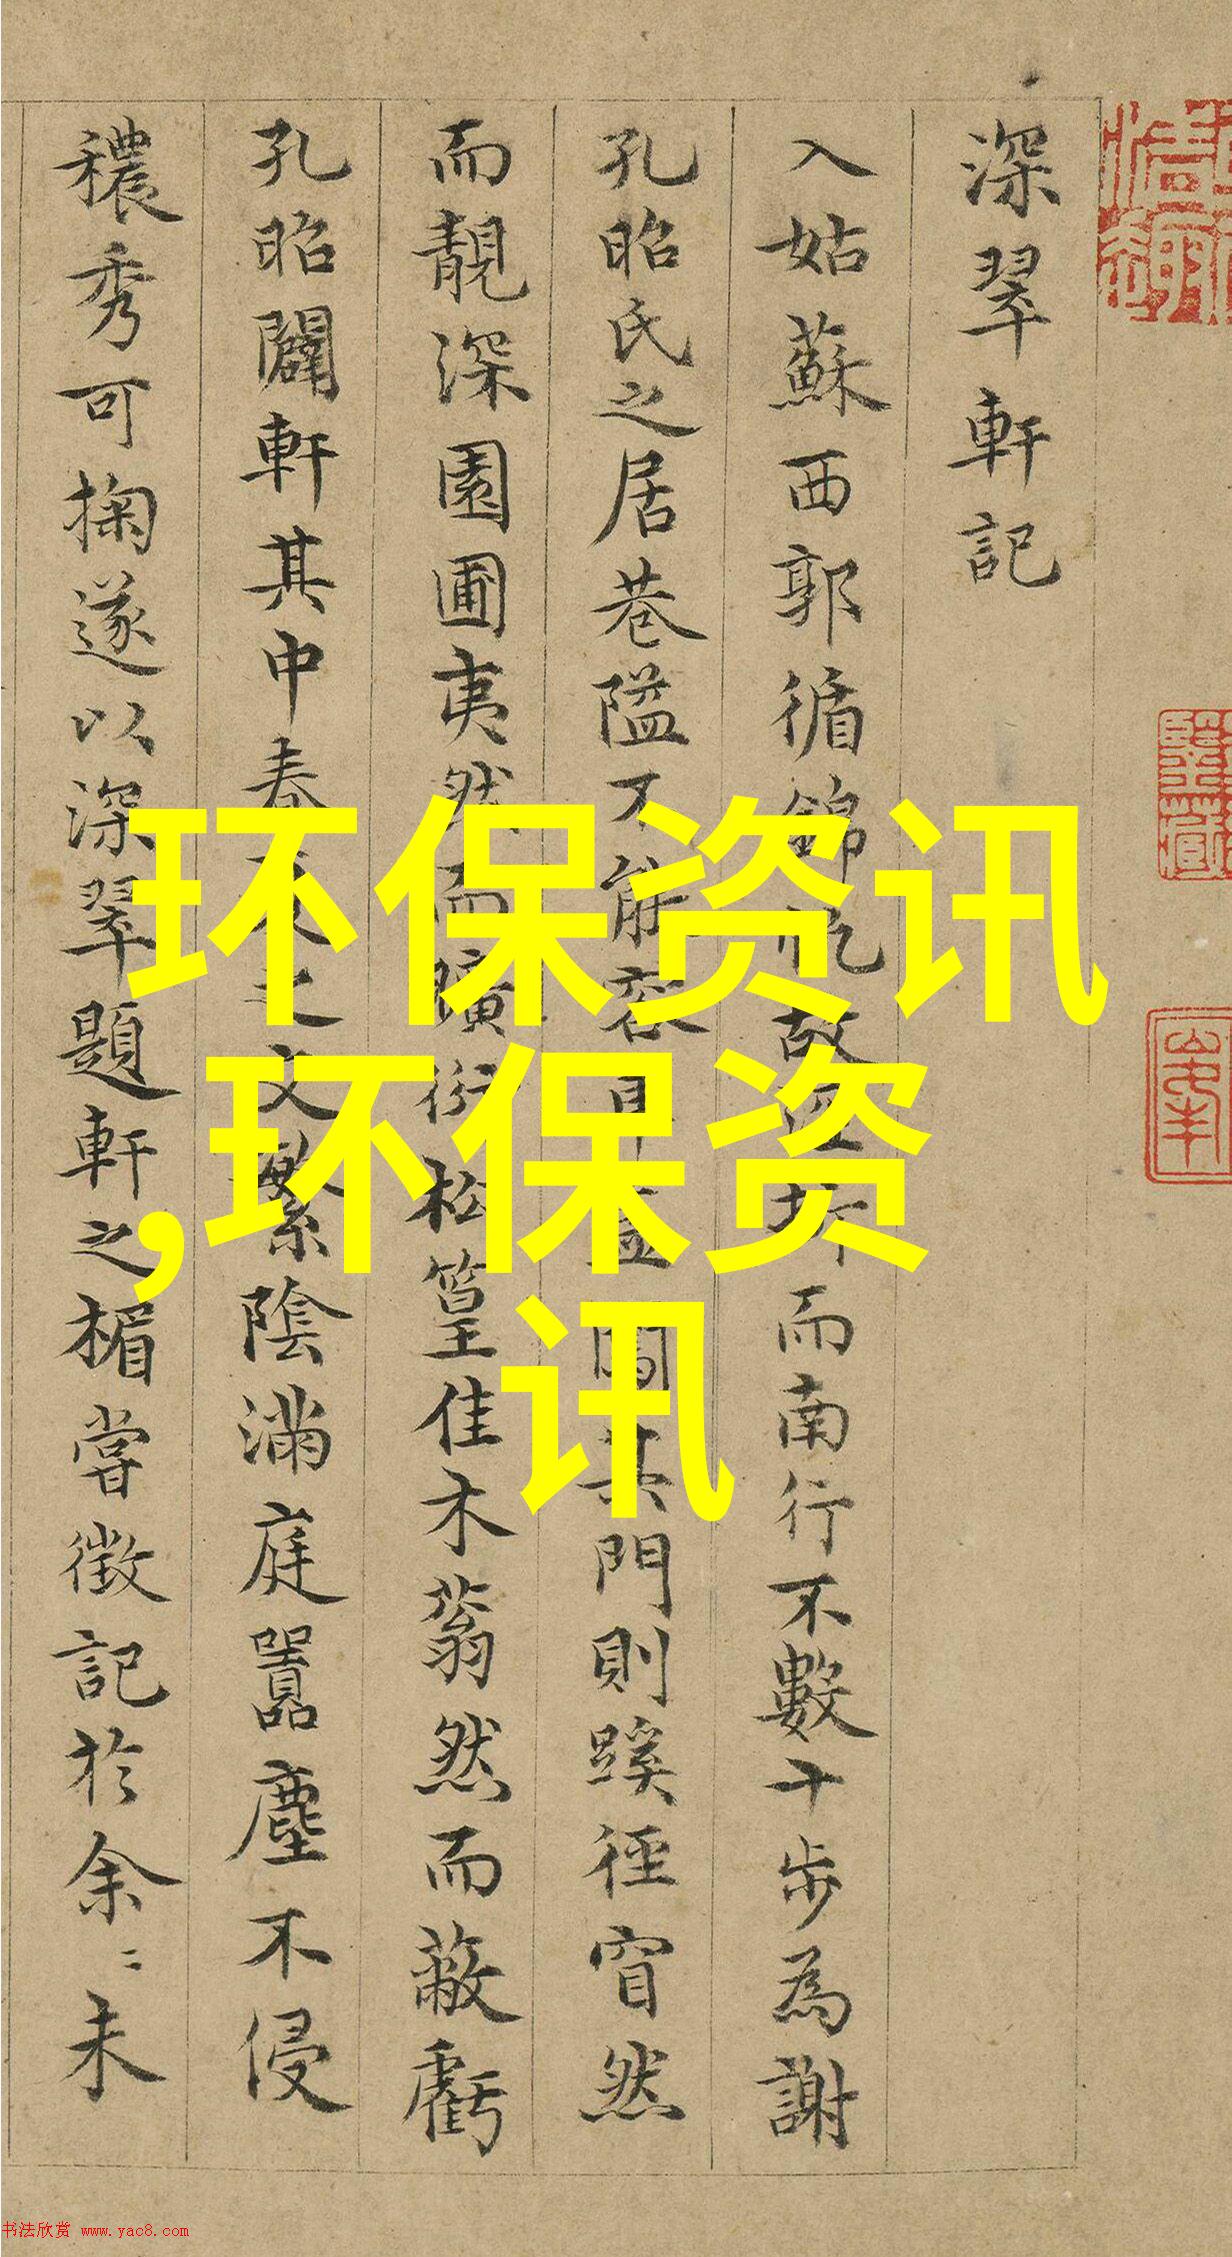 深翠軒記
入姑蘇西郭循錦帆故涇折而南行不數十步為謝
孔昭氏之居巷隘不能容車蓋闔其門則蹊徑窅然
而靚深園圃夷然而曠衍松篁佳木蓊然而蔽虧
孔昭闢軒其中春夏之交繁陰滿庭囂塵不侵
穠秀可掬遂以深翠題軒之楣嘗徵記於余〻未
环保资讯
,环保资
讯
书法欣赏 www.yac8.com